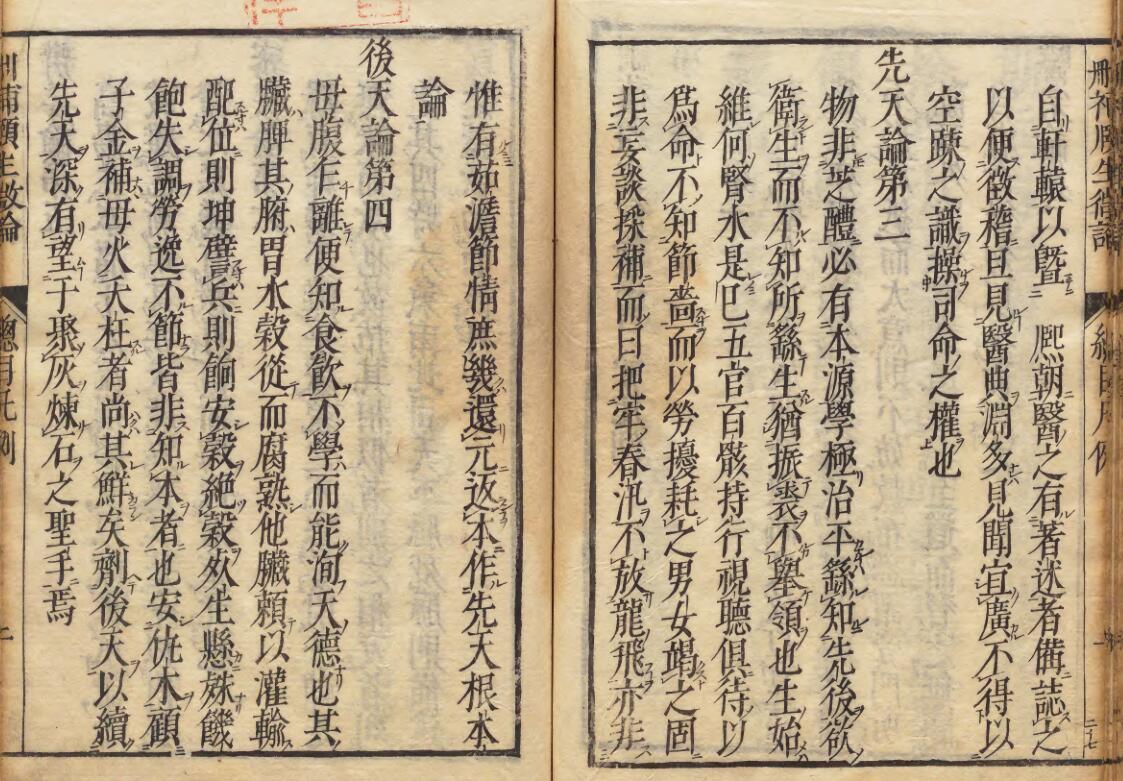 自軒轅以曁　熈朝醫之有著述者備誌之
以便徴稽且見醫典淵多見聞宜廣不得以
空疎之識操司命之權也
先天論第三
物非芝醴必有本源學極治平繇知先後欲
衛生而不知所繇生猶振裘不挈領也生始
維何腎水是已五官百骸持行視聽俱待以
爲命不知節嗇而以勞擾耗之男女竭之固
非妄談採補而曰把牢春汛不放龍飛亦非
惟有茹澹節情庶幾還元返本作先天根本
論
後天論第四
毋腹乍離便知食飲不學而能洵天德也其
臟脾其腑胃水穀從而腐熟他臟賴以灌輸
配位則坤譬兵則餉安穀絶穀夘生懸殊饑
飽失調勞逸不節皆非知本者也安仇木顧
子金補毋火夭枉者尚其鮮矣劑後天以續
先天深有望于聚灰煉石之聖手焉
總目凡例
二